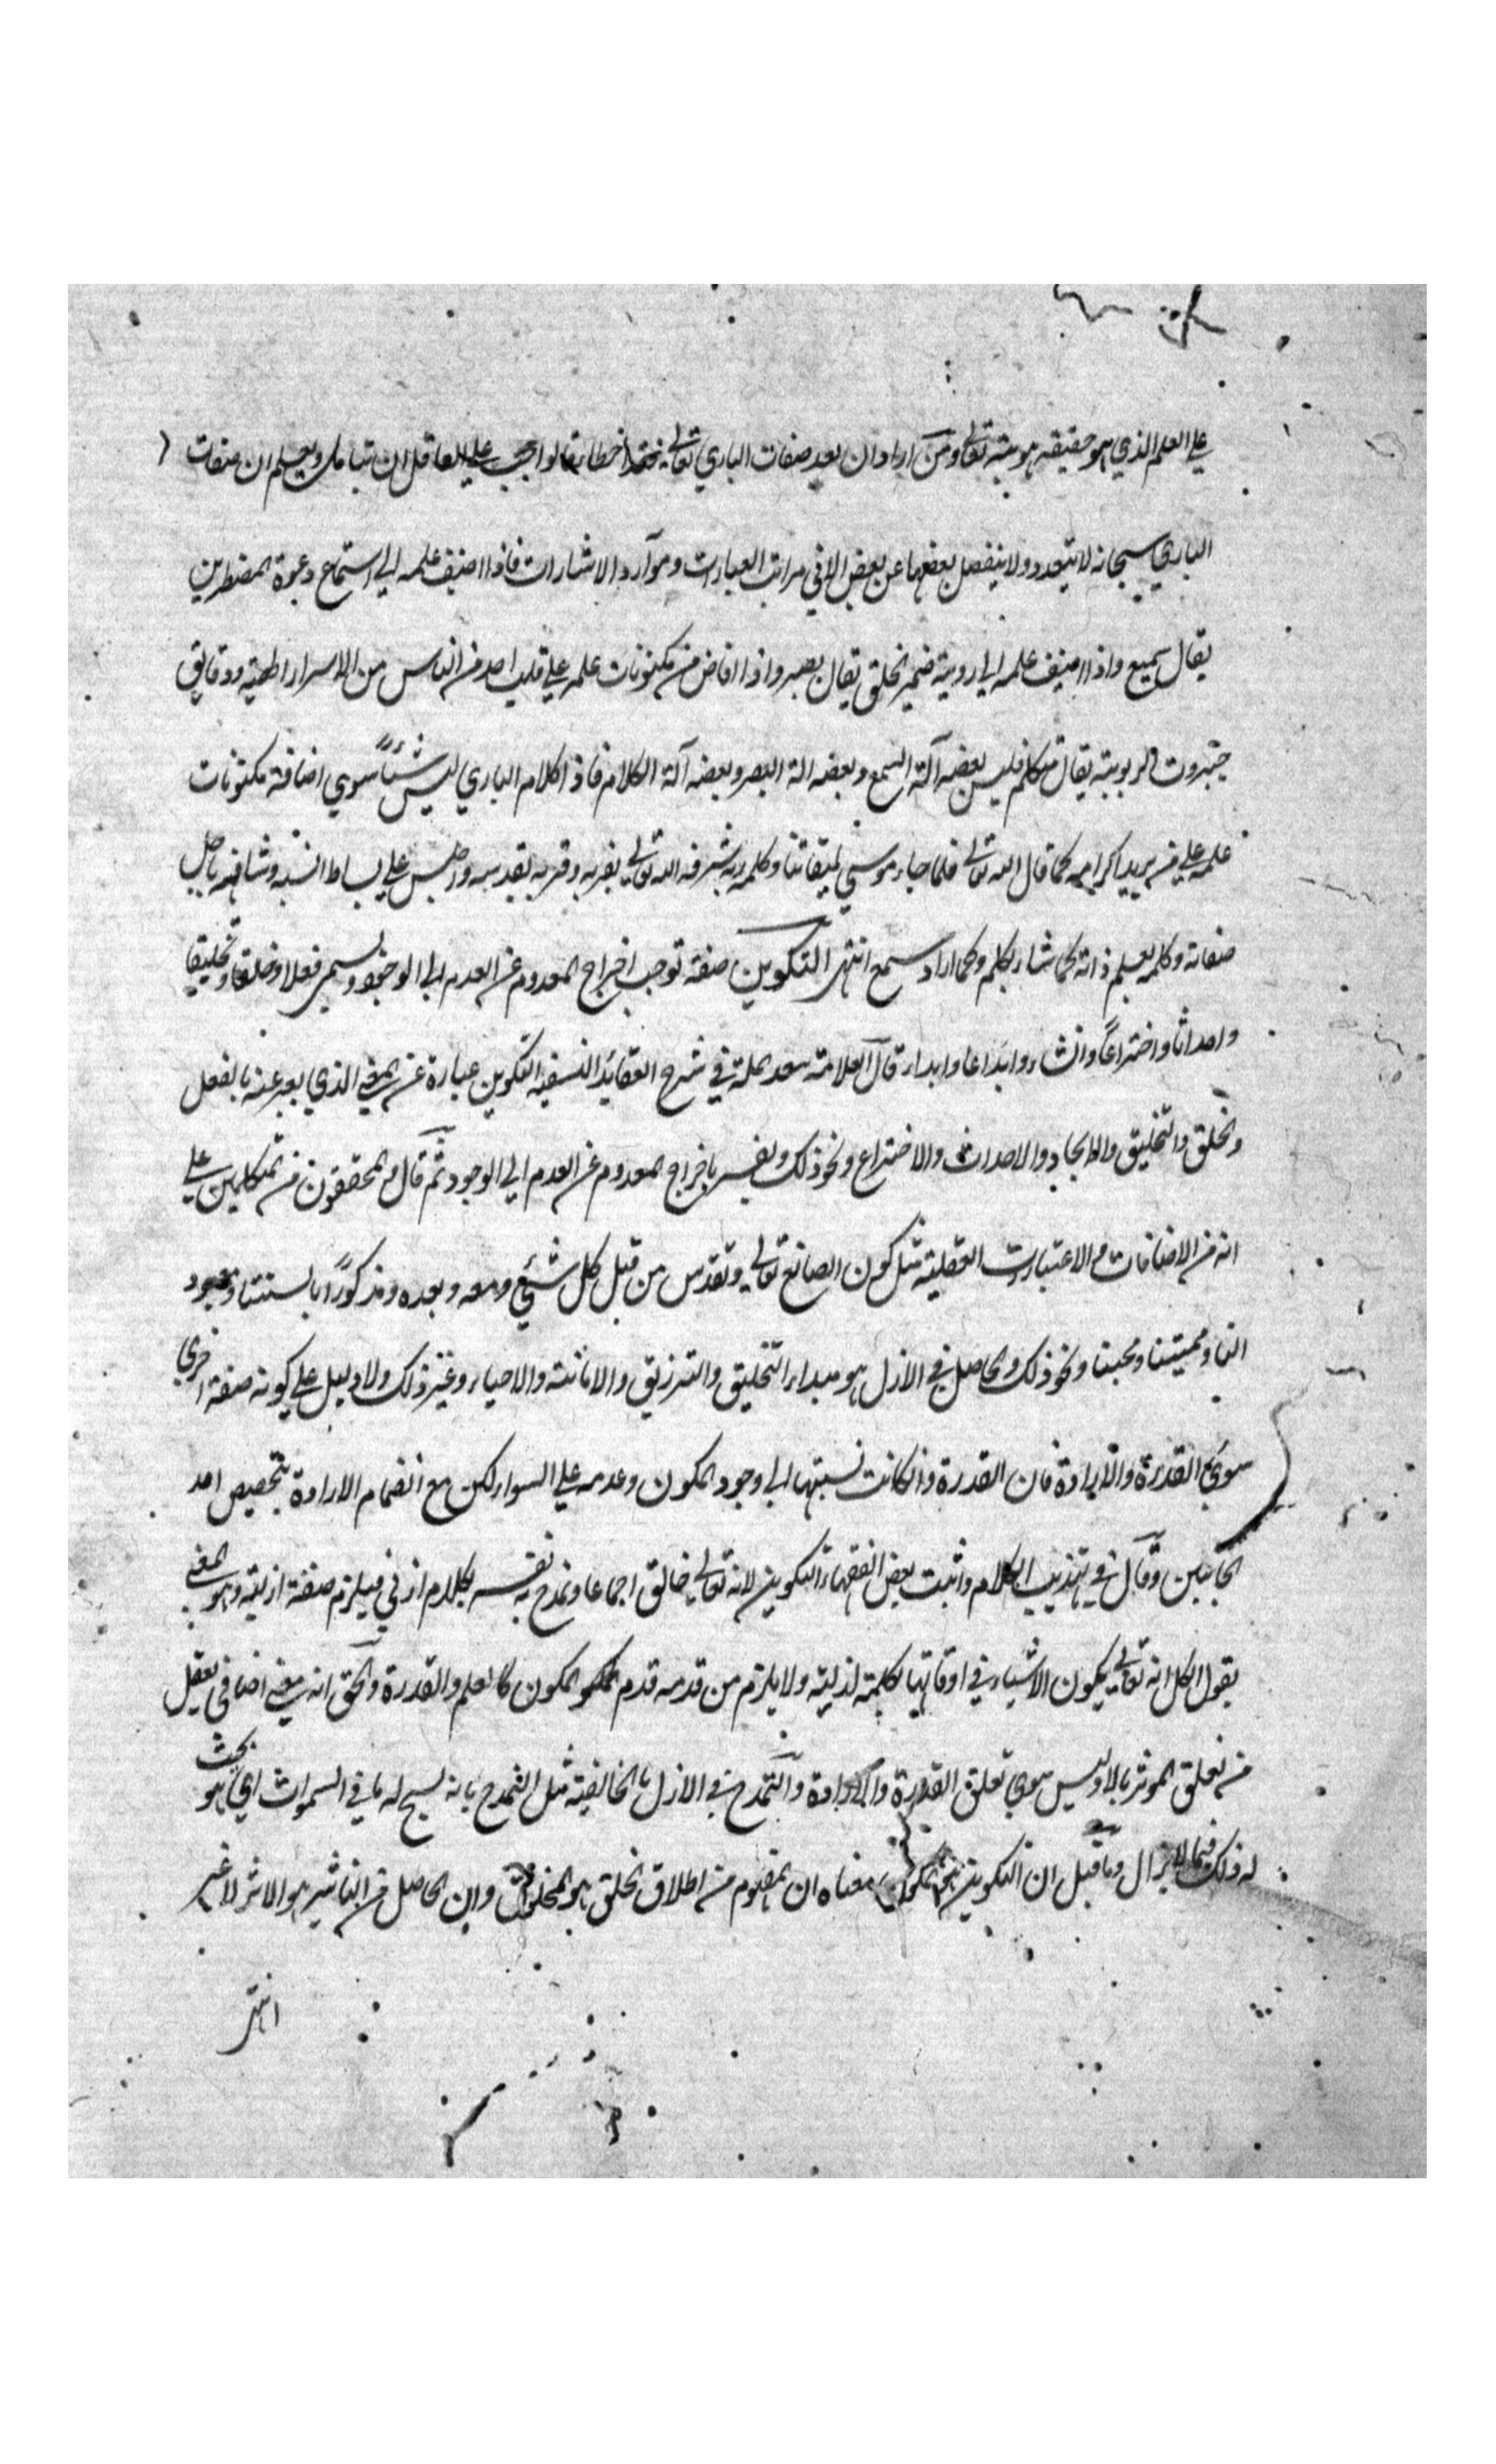 علي العلم الذي هو حقيقه هويته تعالي ومن اراد ان يعد صفات الباري تعالي فقد اخطا فالواجب علي العاقل ان يتامل ويعلم ان صفات
الباري سبحانه لا تتعدد ولا ينفصل بعضها عن بعض الا في مراتب العبارات وموارد الاشارات فاذا اضيف علمه الي استماع دعوة المضطرين
يقال سميع واذا اضيف علمه الي روية ضمير الخلق يقال بصير واذا افاض من مكنونات علمه علي قلب احد من الناس من الاسرار الهية ودقايق
جبروت الربوبية يقال متكلم فليس بعضه آلة السمع وبعضه الة البصر وبعضه آلة الكلام فاذا كلام الباري ليس شيئاً سوي اضافة مكنونات
علمه علي من يريد اكرامه كما قال الله تعالي فلما جاء موسي لميقاتنا وكلمه ربه شرفه الله تعالي بقربه وقربه بقدسه واجلس علي بساط انسه وشافهه باجل
صفاته وكلمه بعلم ذاته كما شاء بكلم وكما اراد سمع انتهي التكوين صفة توجب اخراج المعدوم عن العدم الي الوجود وسمي فعلا وخلقا وتخليقا
واحداثا واختراعاً وانشاء وابداعا وابداء قال العلامة سعد الملة في شرح العقائد النسفية التكوين عبارة عن المعني الذي يعبر عنه بالفعل
والخلق والتخليق والايجاد والاحداث والاختراع ونحو ذلك ويفسر باخراج المعدوم عن العدم الي الوجود ثم قال والمحققون من المتكلمين علي
انه من الاضافات والاعتبارات العقلية مثل كون الصانع تعالي وتقدس من قبل كل شيئ ومعه وبعده ومذكورًا بالسنتنا ومعبود
النا ومميتنا ومحيينا ونحو ذلك والحاصل في الازل هو مبداء التخليق والترزيق والاماتة والاحياء وغير ذلك ولا دليل علي كونه صفة اخري
سوي القدرة والارادة فان القدرة وان كانت نسبتها الي وجود المكون وعدمه علي السواء لكن مع انضمام الارادة يتخصيص احد
الجانبين وقال في تهذيب الكلام واثبت بعض الفقهاء التكوين لانه تعالي خالق اجماعا وتمدح به نفسه بكلام ازلي فيلزم صفة ازلية وهو المعني
بقول الكل انه تعالي يكون الاشياء في اوقاتها بكلمة ازلية ولا يلزم من قدمه قدم المكون كالعلم والقدرة والحق انه معني اضافي يعقل
من تعلق الموثر بالاثر وليس سوي تعلق القدرة والارادة والتمدح في الازل بالخالقية مثل التمدح بانه يسبح له ما في السموات اي هو بحيث
له ذلك فيما لا يزال وما قيل ان التكوين عين المكون معناه ان المفهوم من اطلاق الخلق هو المخلوق وان الحاصل من التاثير هو الاثر لا غير
انتهي